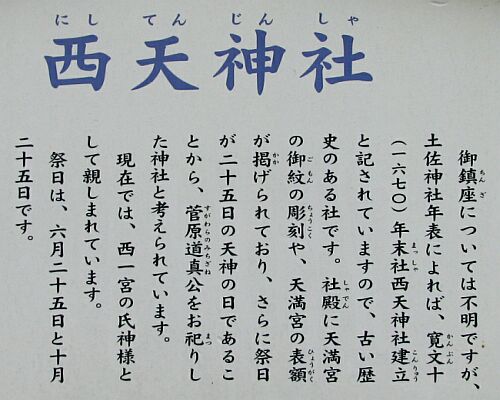 にしてんじんしゃ
西天神社
御鎮座については不明ですが、
土佐神社年表によれば、寛文十
(一六七〇)年末社西天神社建立
と記されていますので、古い歴
史のある社です。社殿に天満宮
の御紋の彫刻や、天満宮の表額
が掲げられており、さらに祭日
が二十五日の天神の日であるこ
とから、菅原道真公をお祀りし
た神社と考えられています。
現在では、西一宮の氏神様と
して親しまれています。
祭日は、六月二十五日と十月
二十五日です。